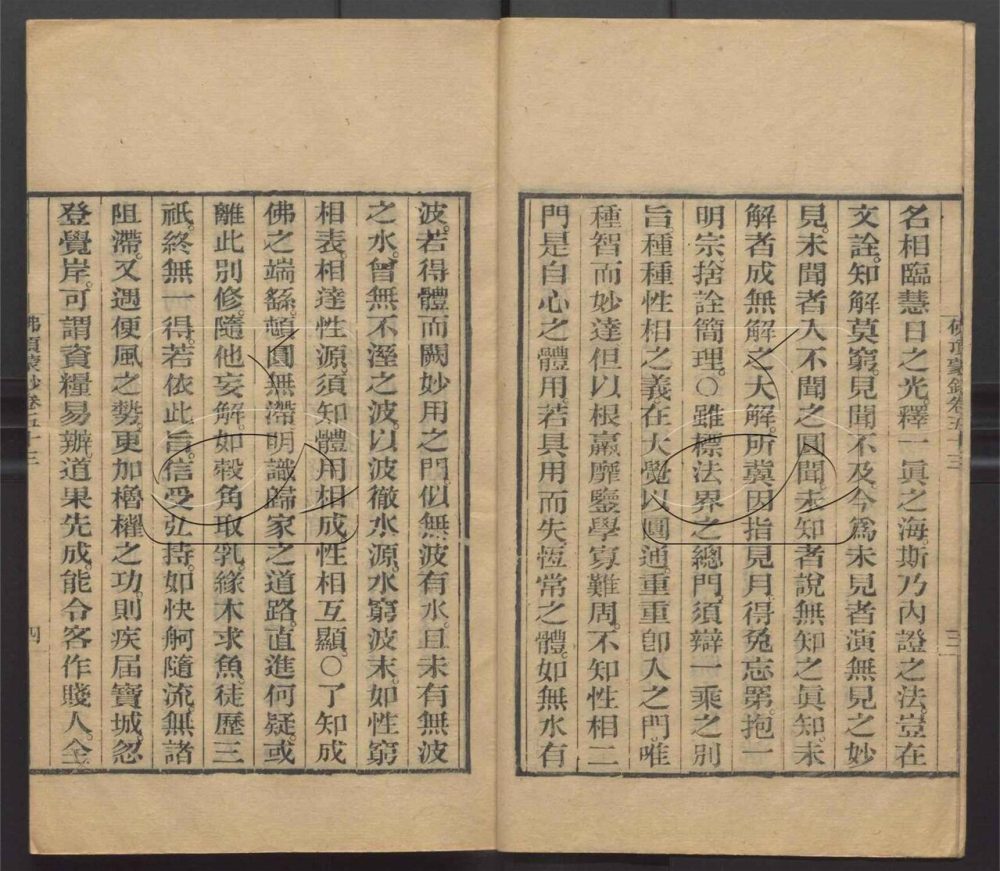 名相臨慧日之光釋一眞之海斯乃內證之法豈在
文詮知解莫窮見聞不及今爲未見者演無見之妙
見未聞者入不聞之圓聞未知者說無知之眞知未
解者成無解之大解所冀因指見月得兔忘罤抱一
明宗捨詮簡理〇雖標法界之總門須辯一乘之別
旨種種性相之義在大覺以圓通重重卽入之門唯
種智而妙達但以根羸靡鑒學寡難周不知性相二
門是自心之體用若具用而失恆常之體如無水有
波若得體而闕妙用之門似無波有水且未有無波
之水曾無不溼之波以波徹水源水窮波末如性窮
相表相達性源須知體用相成性相互顯〇了知成
佛之端繇頓圓無滯明識歸家之道路直進何疑或
離此別修隨他妄解如㝅角取乳緣木求魚徒歷三
祇終無一得若依此旨信受弘持如快舸隨流無諸
阻滯又遇便風之勢更加櫓櫂之功則疾屆寶城忽
登覺岸可謂資糧易辦道果先成能令客作賤人全
佛頂蒙鈔卷五十三
三
佛頂蒙鈔卷五十三
四